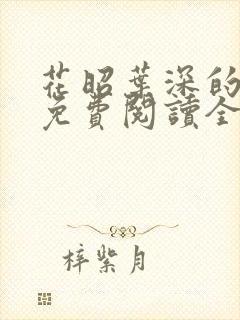 花昭葉深的
免費閱讀全
梓紫月